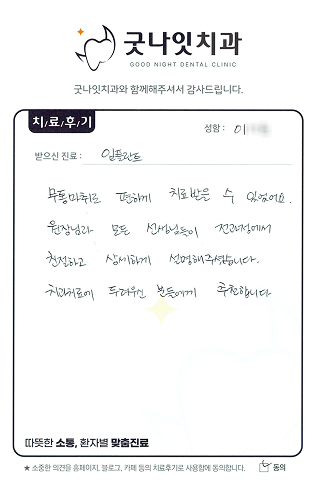 굿나잇치과
GOOD NIGHT DENTAL CLINIC
굿나잇치과와 함께해주셔서 감사드립니다.
치/료/후/기
성함 : 이
받으신 진료 : 임플란트
무통마취로 편하게 치료받은 수 있었어요.
원장님과 모든 선생님들이 전과정에서
친절하고 상세하게 설명해주셨습니다.
치과치료에 두려우신 분들에게 추천합니다
따뜻한 소통, 환자별 맞춤진료
★ 소중한 의견을 홈페이지, 블로그, 카페 등의 치료후기로 사용함에 동의합니다. 동의